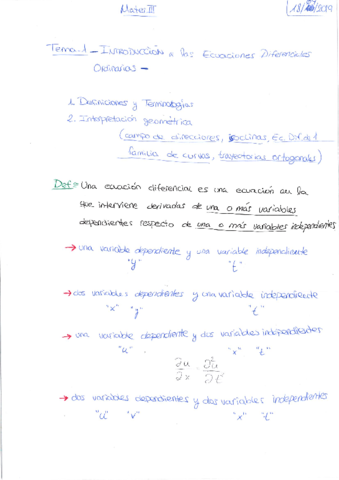 Mates III
18/ /2019
Tema 1 - INTRODUCCIÓN a las Ecuaciones Diferenciales
Ordinarias -
1. Definiciones y Terminologías
2. Interpretación geométrica
(campo de direcciones, isoclinas, Ec Dif de 1
familia de curvas, trayectorias ortogonales)
Def = Una ecuación diferencial es una ecuación en la
que interviene derivadas de una o más variables
dependientes respecto de una o más variables independientes
→ una variable dependiente y una variable independiente
"y" "t"
→ dos variables dependientes y una variable independiente
"x" "y" "t"
→ una variable dependiente y dos variables independientes
"u" "x" "t"
∂u/∂x ∂²u/∂t
→ dos variables dependientes y dos variables independientes
"u" "v" "x" "t"